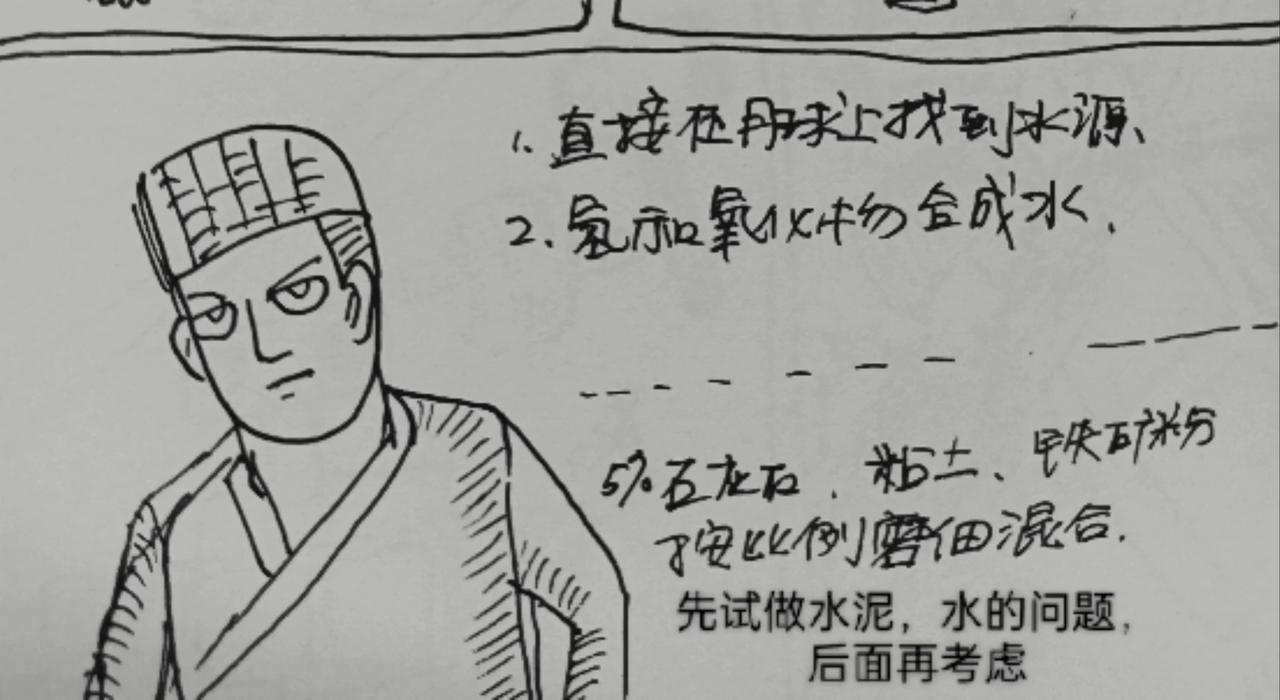 1.直接在月球上找到水源、
2.氢和氧化物合成水.
5%石灰石、粘土、甲铁矿粉
按比例磨细混合.
先试做水泥，水的问题，
后面再考虑